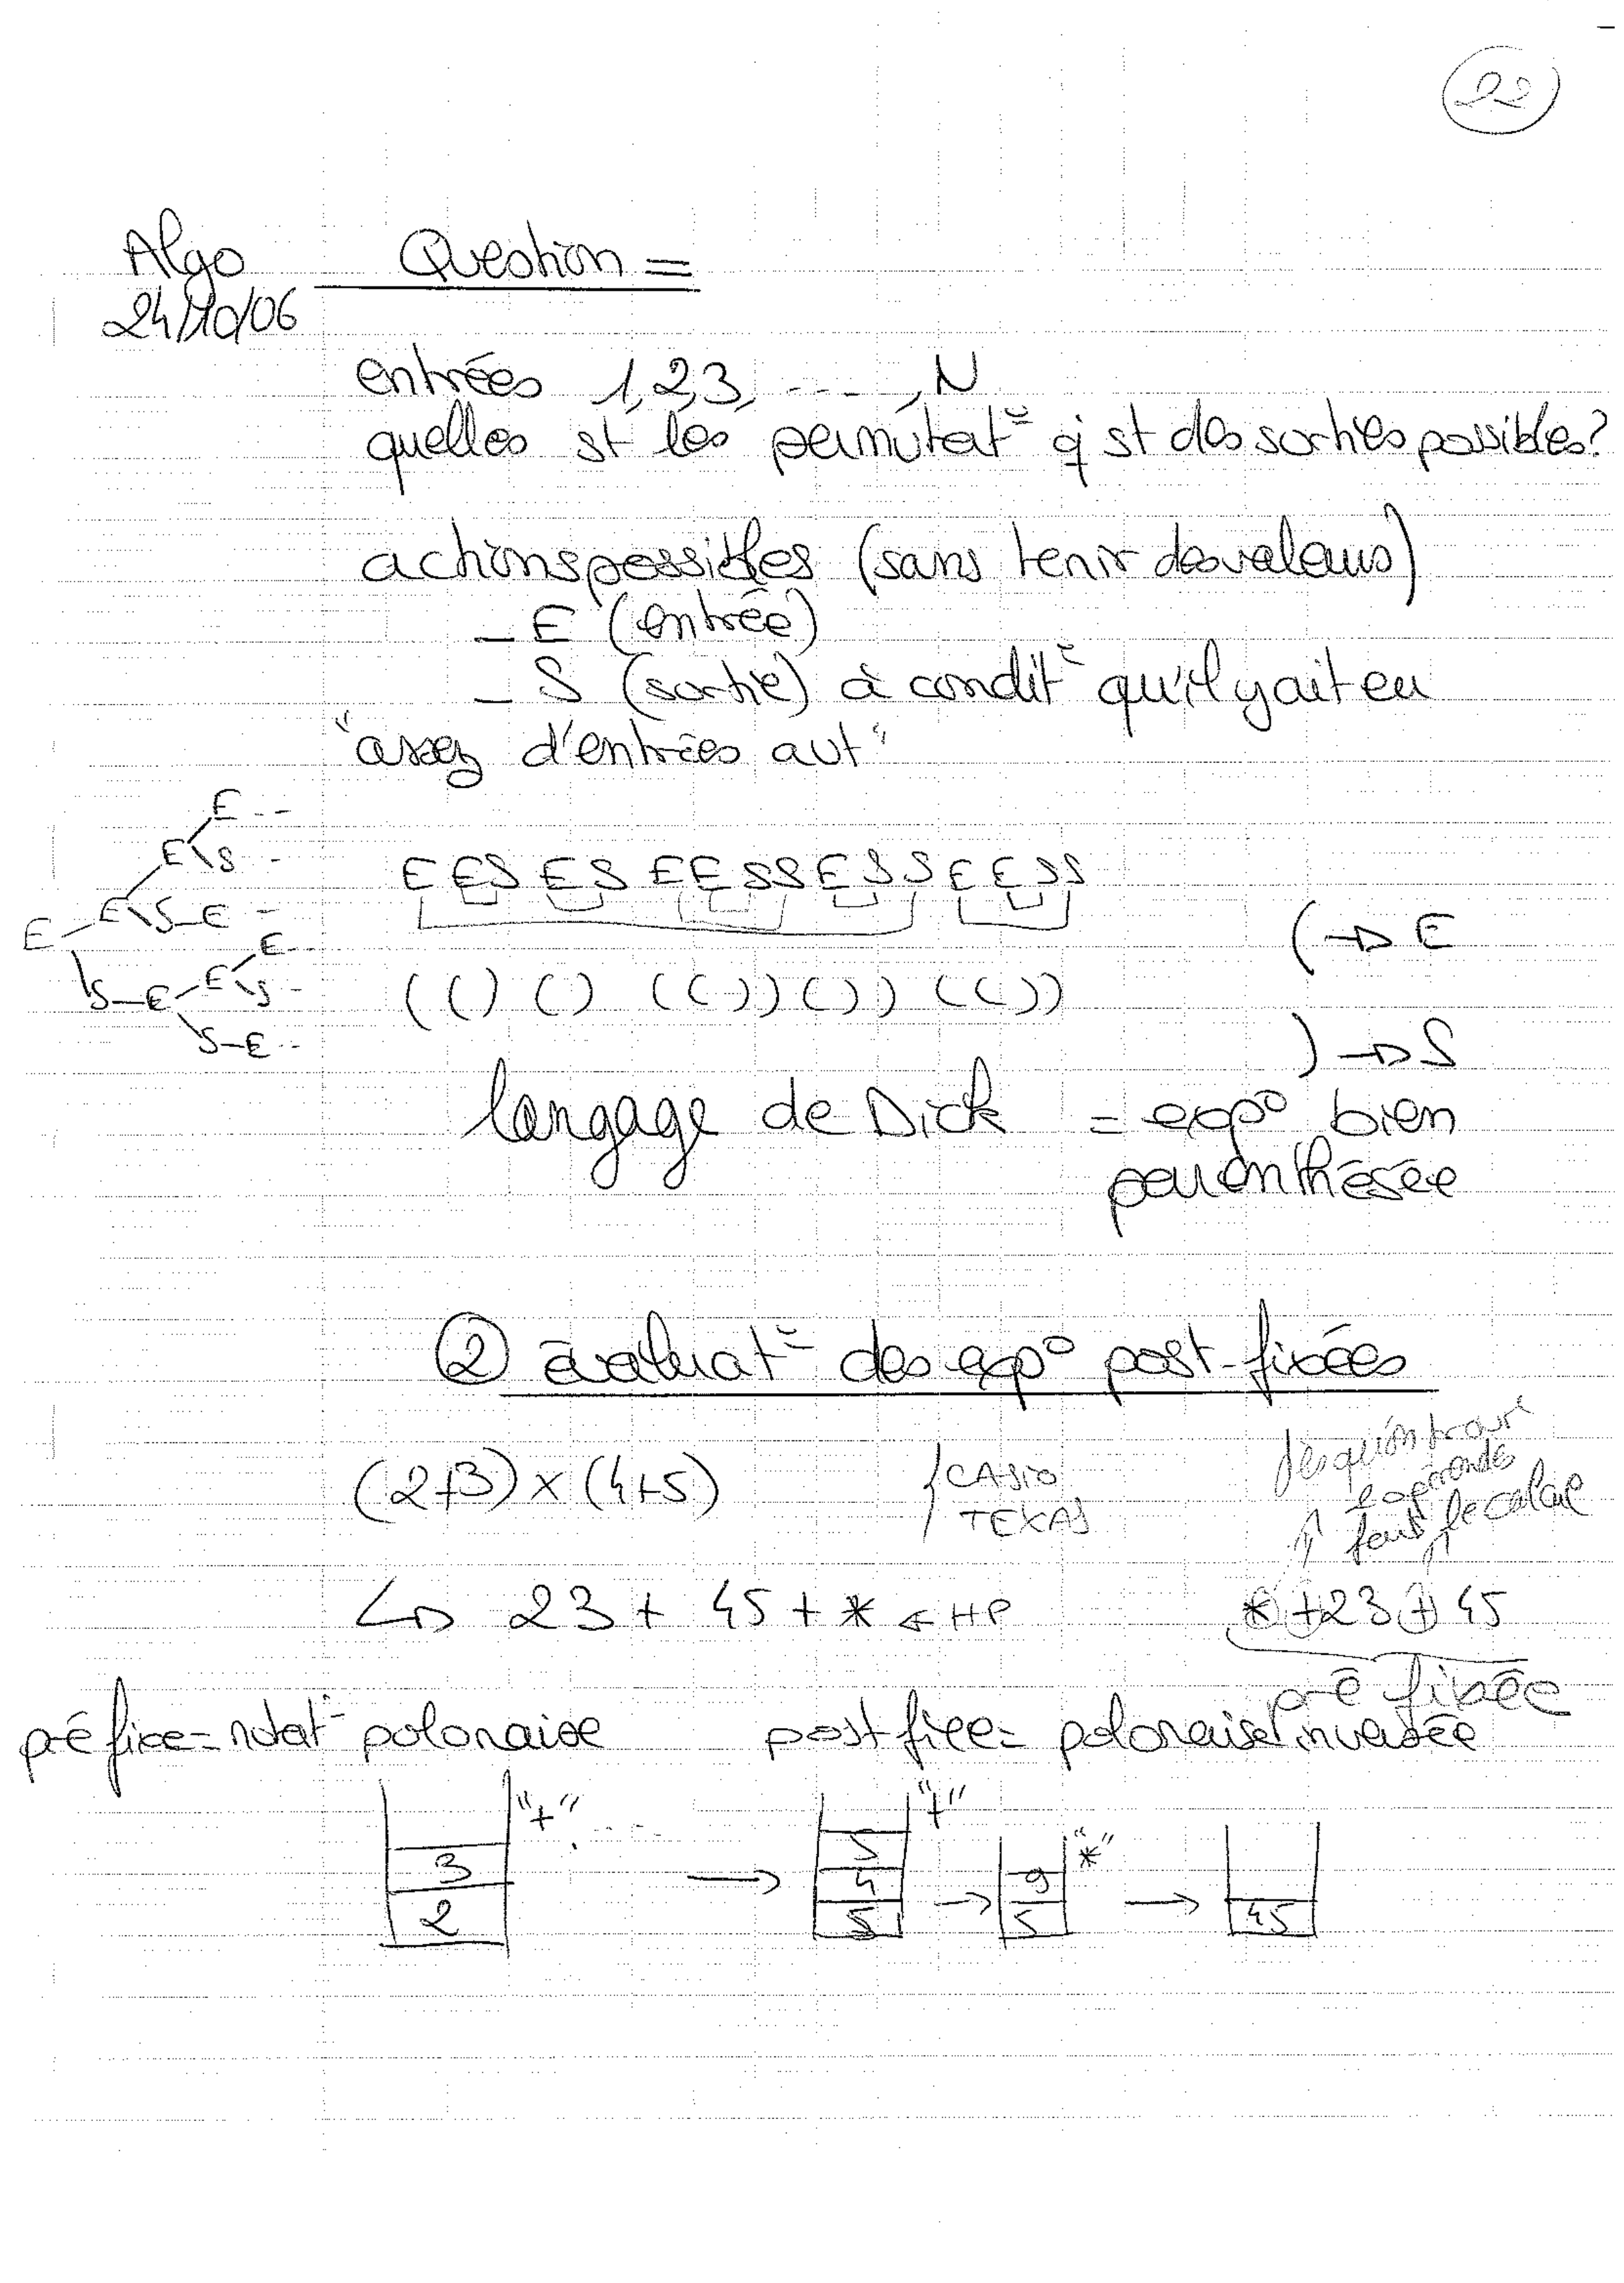 22
Algo Question =
24/10/06
entrées 1,2,3, ---- , N
quelles st les permutat° q' st des sorties possibles?
actions possibles (sans tenir des valeurs)
- E (entrée)
- S (sortie) à condit° qu'il y ait eu
"assez d'entrées avt"
E --
E S -
E E S E S E E S S E S S E E S S
E E S E -
( → E
E --
S E E S -
( ( ) ( ) ( ( ) ) ( ) ) ( ( ) )
S-E --
) → S
langage de Dick = exp° bien
parenthésée
② évaluat° des exp° post-fixées
(2+3) × (4+5)
CASIO
TEXAS
dès qu'on trouve
2 opérandes
fait le calcul
↳ 23 + 45 + * ← HP
* + 23 + 45
pré fixée
préfixe = notat° polonaise
postfixe = polonaise inversée
"+" "+"
5 "*"
3 → 4 → 9 →
2 5 5 45